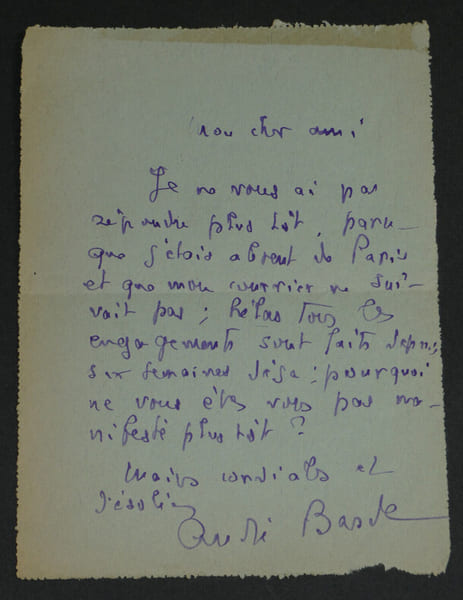 Mon cher ami
Je ne vous ai pas
répondu plus tôt, parce-
que j'étais absent de Paris
et que mon courrier ne sui-
vait pas ; hélas tous les
engagements sont faits depuis
six semaines déjà ; pourquoi
ne vous êtes vous pas ma-
nifesté plus tôt ?
Mains cordiales et
désolées
André Barde